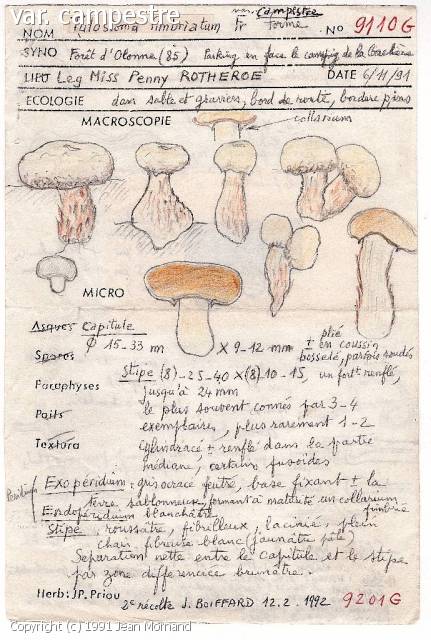 var. campestre
var. campestre
NOM Tulostoma fimbriatum Fr forme No 9110G
SYNO Forêt d'Olonne (85) Parking en face le camping de la
LIEU Leg Miss Penny ROTHEROE DATE 6/11/91
ECOLOGIE dans sable et graviers, bord de route, bordure pins
MACROSCOPIE collarium
MICRO
Asques Capitule
Φ 15-33 mm X 9-12 mm ± plié en coussin
Spores bosselé, parfois soudés
Stipe (8)-25-40 X (8) 10-15, un fort renflé,
Paraphyses jusqu'à 24 mm
Poils le plus souvent connés par 3-4
exemplaires, plus rarement 1-2
Textura cylindracé ± renflé dans la partie
médiane, certains fusoïdes
Peridium Exopéridium : gris ocracé feutré, base fixant ± la
terre sablonneux, formant à maturité un collarium
Endopéridium blanchâtre fimbrié
Stipe, roussâtre, fibrilleux, lacinié, plein
chair fibreuse blanc (jaunâtre pâle)
Séparation nette entre le capitule et le stipe
par zone différenciée brunâtre.
Herb: J.P. Priou
2e récolte J. BOIFFARD 12.2.1992 9201G
Copyright (c) 1991 Jean Mornand